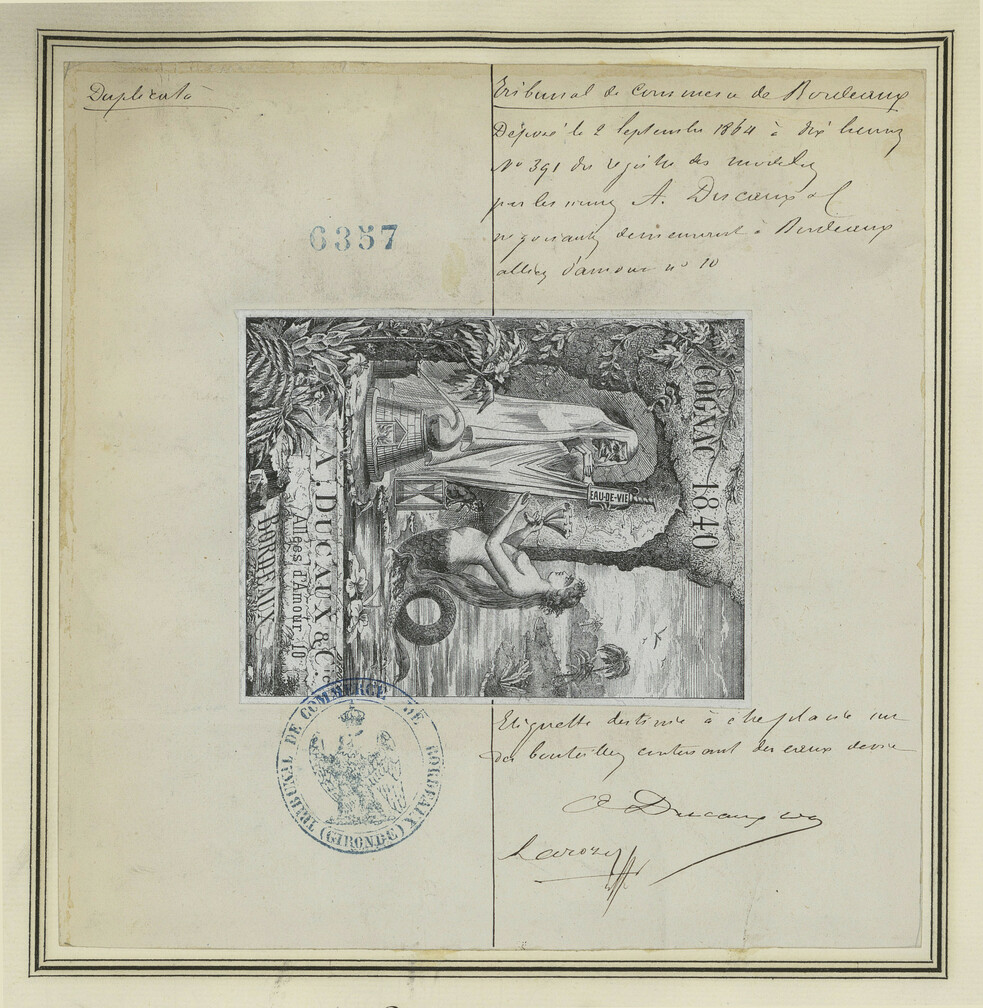 Duplicata
Tribunal de Commerce de Bordeaux
Déposé le 2 Septembre 1864 à dix heures
Nº 391 du registre des modeles
par les sieurs A. Ducaux & C
negociants demeurant à Bordeaux
allées d'amour nº 10
6357
COGNAC 1840
EAU-DE-VIE
A. DUCAUX & Cie
Allées d'Amour. 10
BORDEAUX
TRIBUNAL DE COMMERCE DE BORDEAUX
(GIRONDE)
Etiquette destinée à être placée sur
des bouteilles contenant des eaux de vie
A Ducaux